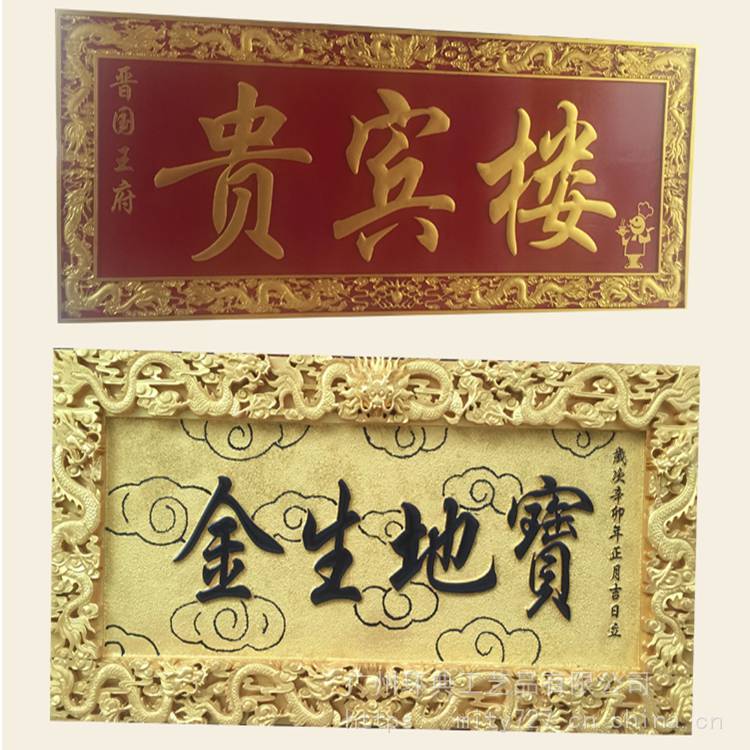 晋国王府
贵宾楼
歲次辛卯年正月吉日立
寶地生金
广州 典工艺品有限公司
https://mify727.cn.china.cn